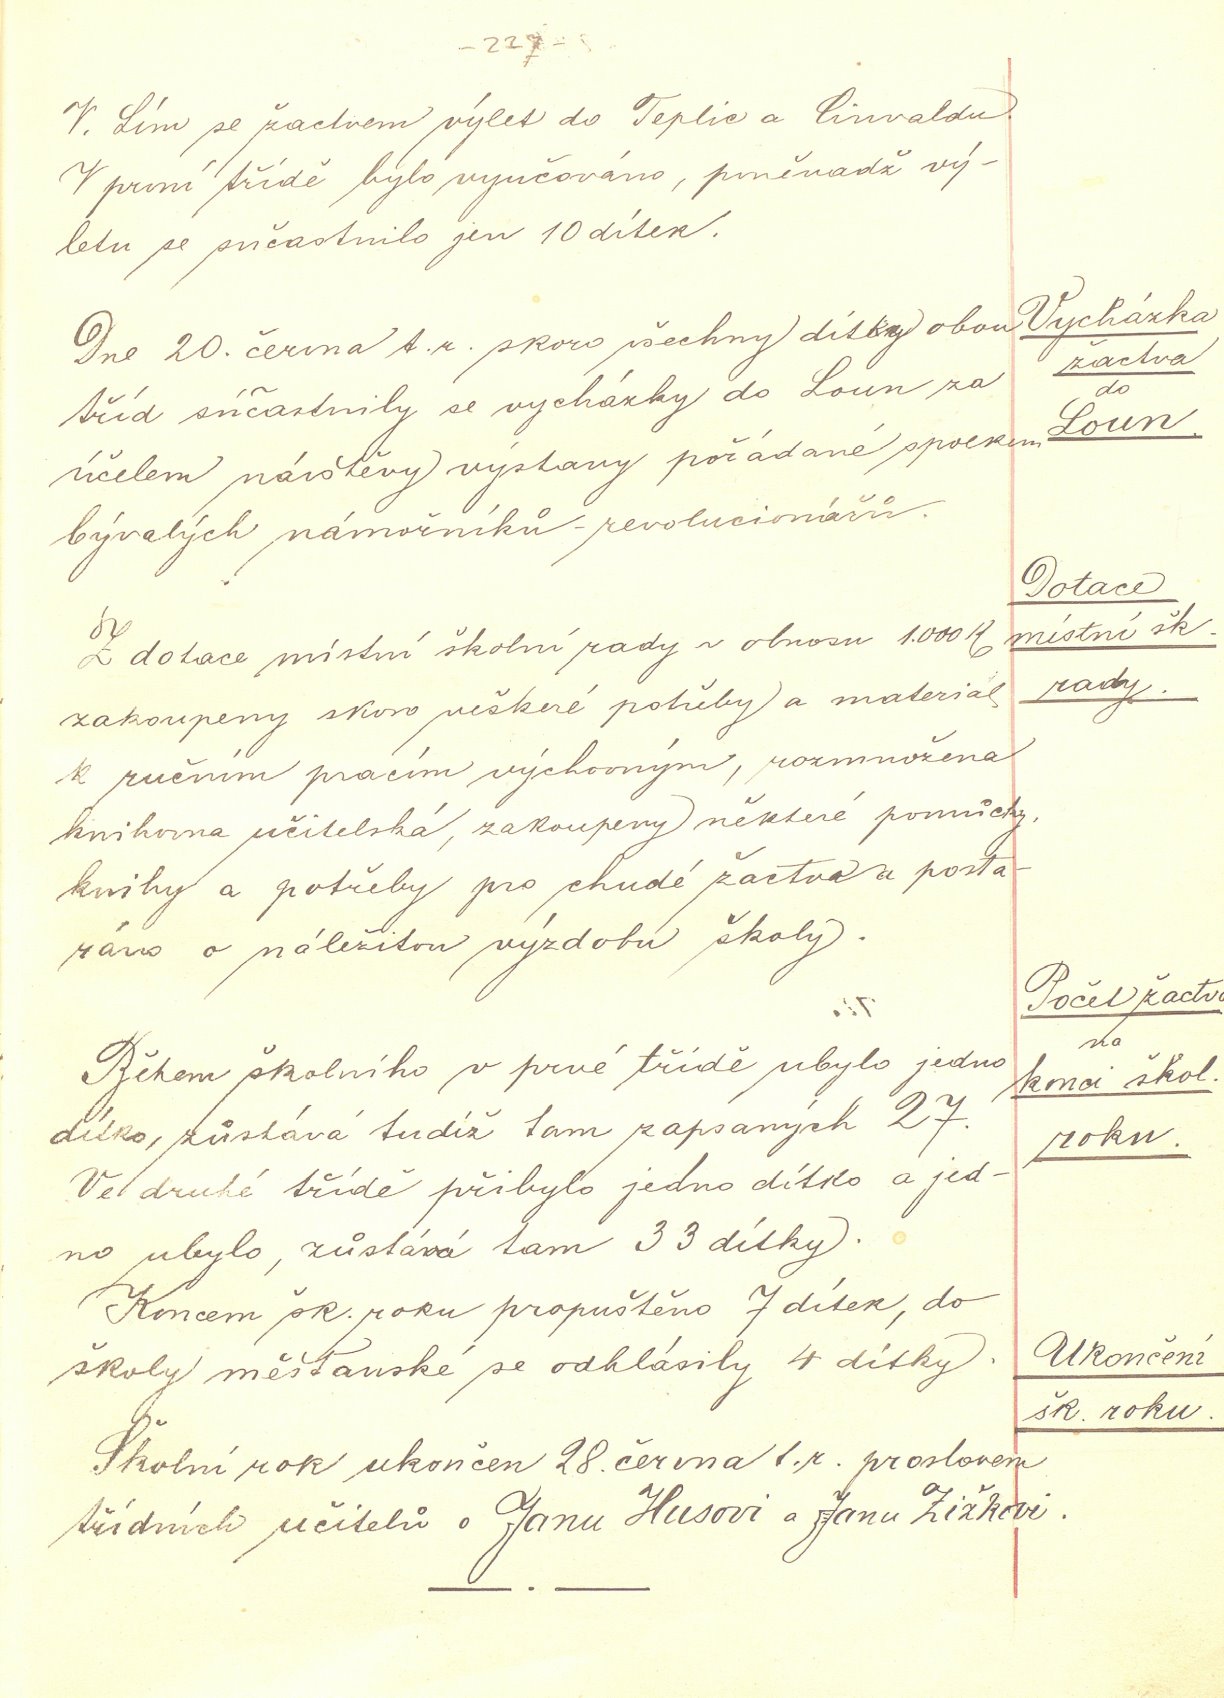 - 227 -
V. Lím se žactvem výlet do Teplic a Cinvaldu.
V první třídě bylo vyučováno, poněvadž vý-
letu se súčastnilo jen 10 dítek.
Dne 20. června t. r. skoro všechny dítky obou
tříd súčastnily se vycházky do Loun za
účelem návštěvy výstavy pořádané spolkem
bývalých námořníků - revolucionářů.
Vycházka
žactva
do
Loun.
Z dotace místní školní rady v obnosu 1.000 K
zakoupeny skoro veškeré potřeby a materiál
k ručním pracím výchovným, rozmnožena
knihovna učitelská, zakoupeny některé pomůcky,
knihy a potřeby pro chudé žactvo a posta-
ráno o náležitou výzdobu školy.
Dotace
místní šk.
rady.
Během školního v prvé třídě ubylo jedno
dítko, zůstává tudíž tam zapsaných 27.
Ve druhé třídě přibylo jedno dítko a jed-
no ubylo, zůstává tam 33 dítky.
Koncem šk. roku propuštěno 7 dítek, do
školy měšťanské se odhlásily 4 dítky.
Počet žactva
na
konci škol.
roku.
Školní rok ukončen 28. června t. r. proslovem
třídních učitelů o Janu Husovi a Janu Žižkovi.
Ukončení
šk. roku.